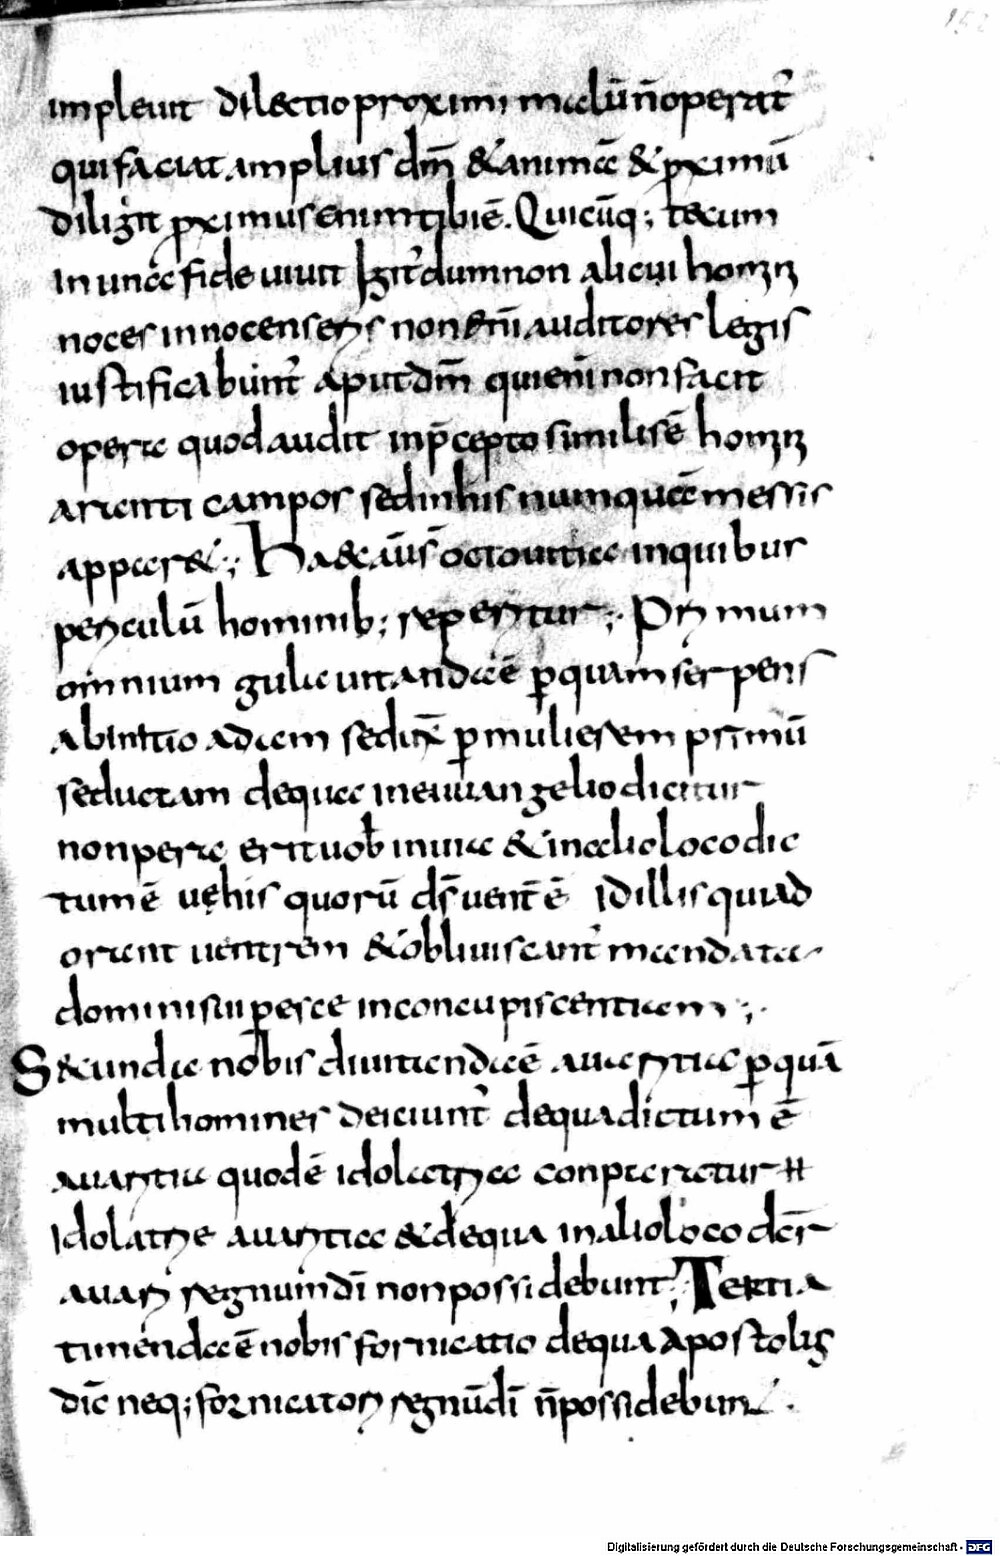 impleuit dilectio proximi malū n̄ operat᷑
qui faciat amplius dm̄ & animā & ꝓximū
diligit ꝓximus enim tibi ē. Quicūq; tecum
in una fide uiuit Igit᷑ dum non alicui homini
noces innocens eris non enī auditores legis
iustificabunt᷑ aput dm̄ qui enī non facit
opera quod audit in p̄cepto similis ē homini
aranti campos sed in his numquā messis
apparet;. Haec aūs octo uitia in quibus
periculū hominib; reperitur;. Primum
omnium gula uitanda ē ꝑ quam serpens
ab initio adam seduxit ꝑ mulierem primū
seductam de qua in euuangelio dicitur
non pera erit uob̄ in uia & in alio loco dic
tum ē uę his quorū ds̄ uent̄ ē id illis qui ad
orant uentrem & obliuiscant᷑ mandata
domini sui ꝑ esca in concupiscentiam;.
S&unda nobis diuitanda ē auaritia ꝑ quā
multi homines deiciunt᷑ de qua dictum ē
auaritia quod ē idolatria conparatur
idolatrie auaritia & de qua in alio loco dcr̄
auari regnum dī non possidebunt; Tertia
timenda ē nobis fornicatio de qua apostolus
dic̄ neq; fornicatori regnū dī n̄ possidebunt.